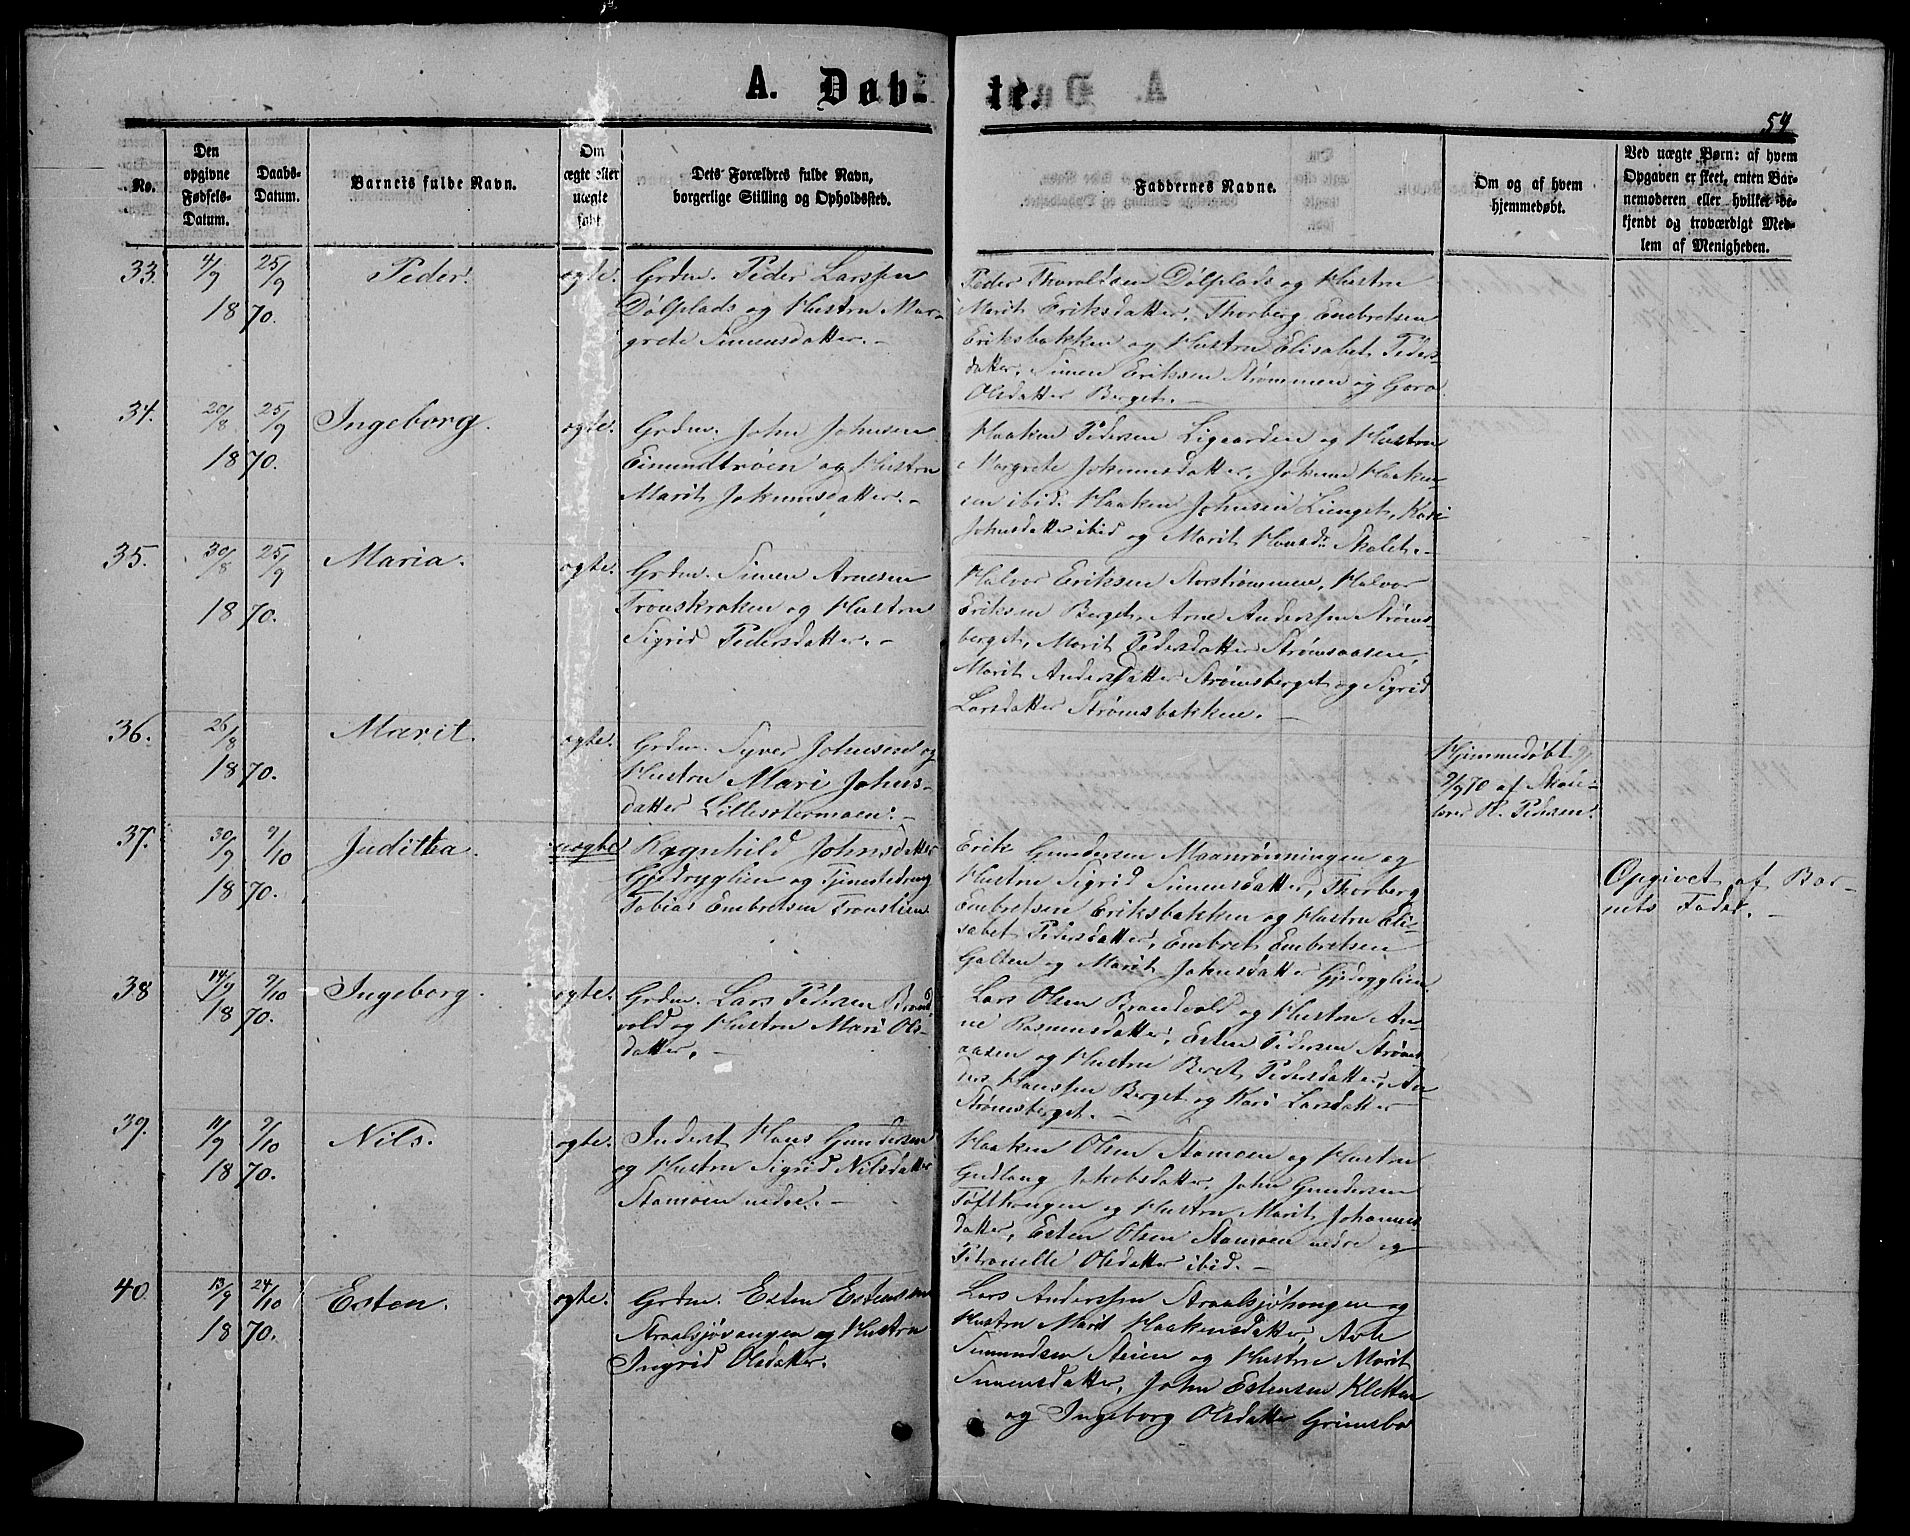 A. Døbte.
54
No.
Den
opgivne
Fødsels-
Datum.
Daabs-
Datum.
Barnets fulde Navn.
Om
ægte eller
uægte
født.
Dets Forældres fulde Navn,
borgerlige Stilling og Opholdssted.
Faddernes Navne.
Om og af hvem
hjemmedøbt.
Ved uægte Børn: af hvem
Opgaven er skeet, enten Bar-
nemoderen eller hvilket be-
kjendt og troværdigt Med-
lem af Menigheden.
33. 4/9 1870. 25/9 Peder. ægte.
Grdm. Peder Larssen
Dølplads og Hustru Mar-
grete Simensdatter. -
Peder Thoraldsen Dølplads og Hustru
Marit Eriksdatter, Thorberg Embretsen
Eriksbakken og Hustru Elisabet Peders-
datter, Simen Eriksen Strømmen og Goro
Olsdatter Berget. -
34. 20/8 1870. 25/9 Ingeborg. ægte.
Grdm. John Johnsen
Eimundtrøen og Hustru
Marit Johannsdatter. -
Haaken Pedersen Ligaarden og Hustru
Margrete Johannesdatter, Johann Haaken-
sen ibid. Haaken Johnsen Lienget, Kari
Johnsdatter ibid og Marit Hansdr. Skolet. -
35. 30/8 1870. 25/9 Maria. ægte.
Grdm. Simen Arnesen
Tronskroken og Hustru
Sigrid Pedersdatter. -
Halvor Eriksen Storstrømmen, Halvor
Eriksen Berget, Arne Anderssen Strøms-
berget, Marit Pedersdatter Strømsaasen,
Marit Andersdatter Strømsberget og Sigrid
Larsdatter Strømsbakken. -
36. 26/8 1870. Marit. ægte.
Grdm. Syver Johnsen og
Hustru Mari Johns-
datter Lillestermoen. -
Hjemmedøbt
9/9 70 af Skole-
lærer H. Pedersen.
37. 30/9 1870. 9/10 Juditha. uægte
Ragnhild Johnsdatter
Gjedrygglien og Tjenestedreng
Tobias Embretsen Tronslien
Erik Gundersen Maanrønningen og
Hustru Sigrid Simensdatter, Thorberg
Embretsen Eriksbakken og Hustru Eli-
sabet Pedersdatter, Embret Embretsen
Galten og Marit Johnsdatter Gjedrygglien.
Opgivet af Bar-
nets Fader. -
38 14/9 1870. 9/10 Ingeborg. ægte.
Grdm. Lars Pedersen Brand-
vold og Hustru Mari Ols-
datter. -
Lars Olsen Brandvold og Hustru An-
ne Rasmusdatter, Esten Pedersen Strøms-
aasen og Hustru Beret Pedersdatter, An-
ders Hanssen Berget og Kari Larsdatter
Strømsberget. -
39. 11/9 1870. 9/10 Nils. ægte.
Inderst Hans Gundersen
og Hustru Sigrid Nilsdatter
Stamoen nedre. -
Haaken Olsen Stamoen og Hustru
Gudlaug Jakobsdatter, John Gundersen
Tøfthaugen og Hustru Marit Johannes-
datter, Esten Olsen Stamoen nedre og
Petronelle Olsdatter ibid. -
40. 13/9 1870. 24/10 Esten. ægte.
Grdm. Esten Estensen
Straalsjøvangen og Hustru
Ingrid Olsdatter.
Lars Anderssen Straalsjøhaugen og
Hustru Marit Haakensdatter, Arne
Simundsen Steien og Hustru Marit
Simensdatter, John Estensen Kletten
og Ingeborg Olsdatter Grimsbo